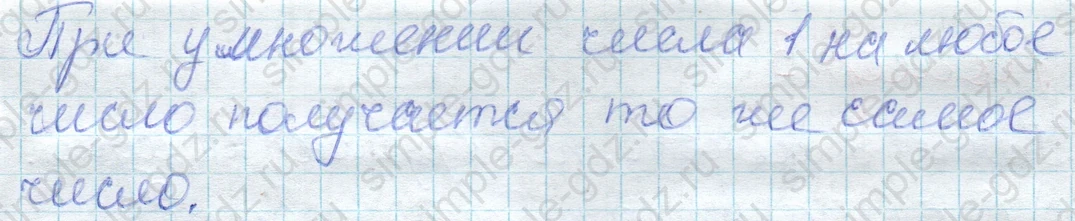 При умножении числа 1 на любое
число получается то же самое
число.